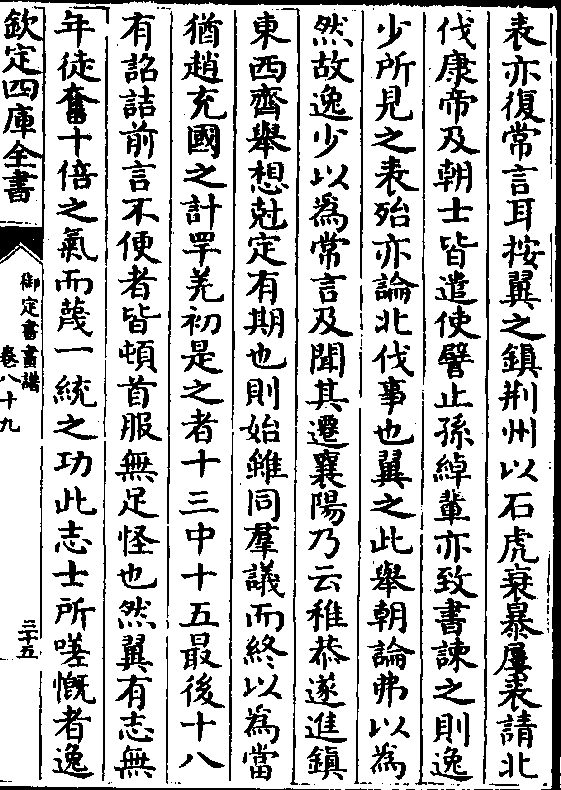 表亦復常言耳按翼之鎮荆州以石虎衰暴屢表請北
伐康帝及朝士皆遣使譬止孫綽輩亦致書諫之則逸
少所見之表殆亦論北伐事也翼之此舉朝論弗以為
然故逸少以為常言及聞其遷襄陽乃云稚恭遂進鎮
東西齊舉想尅定有期也則始雖同羣議而終以為當
猶趙充國之計罕羌初是之者十三中十五最後十八
有詔詰前言不便者皆頓首服無足怪也然翼有志無
年徒奮十倍之氣而蔑一統之功此志士所嗟慨者逸
欽定四庫全書
御定書畫譜
卷八十九
三十五